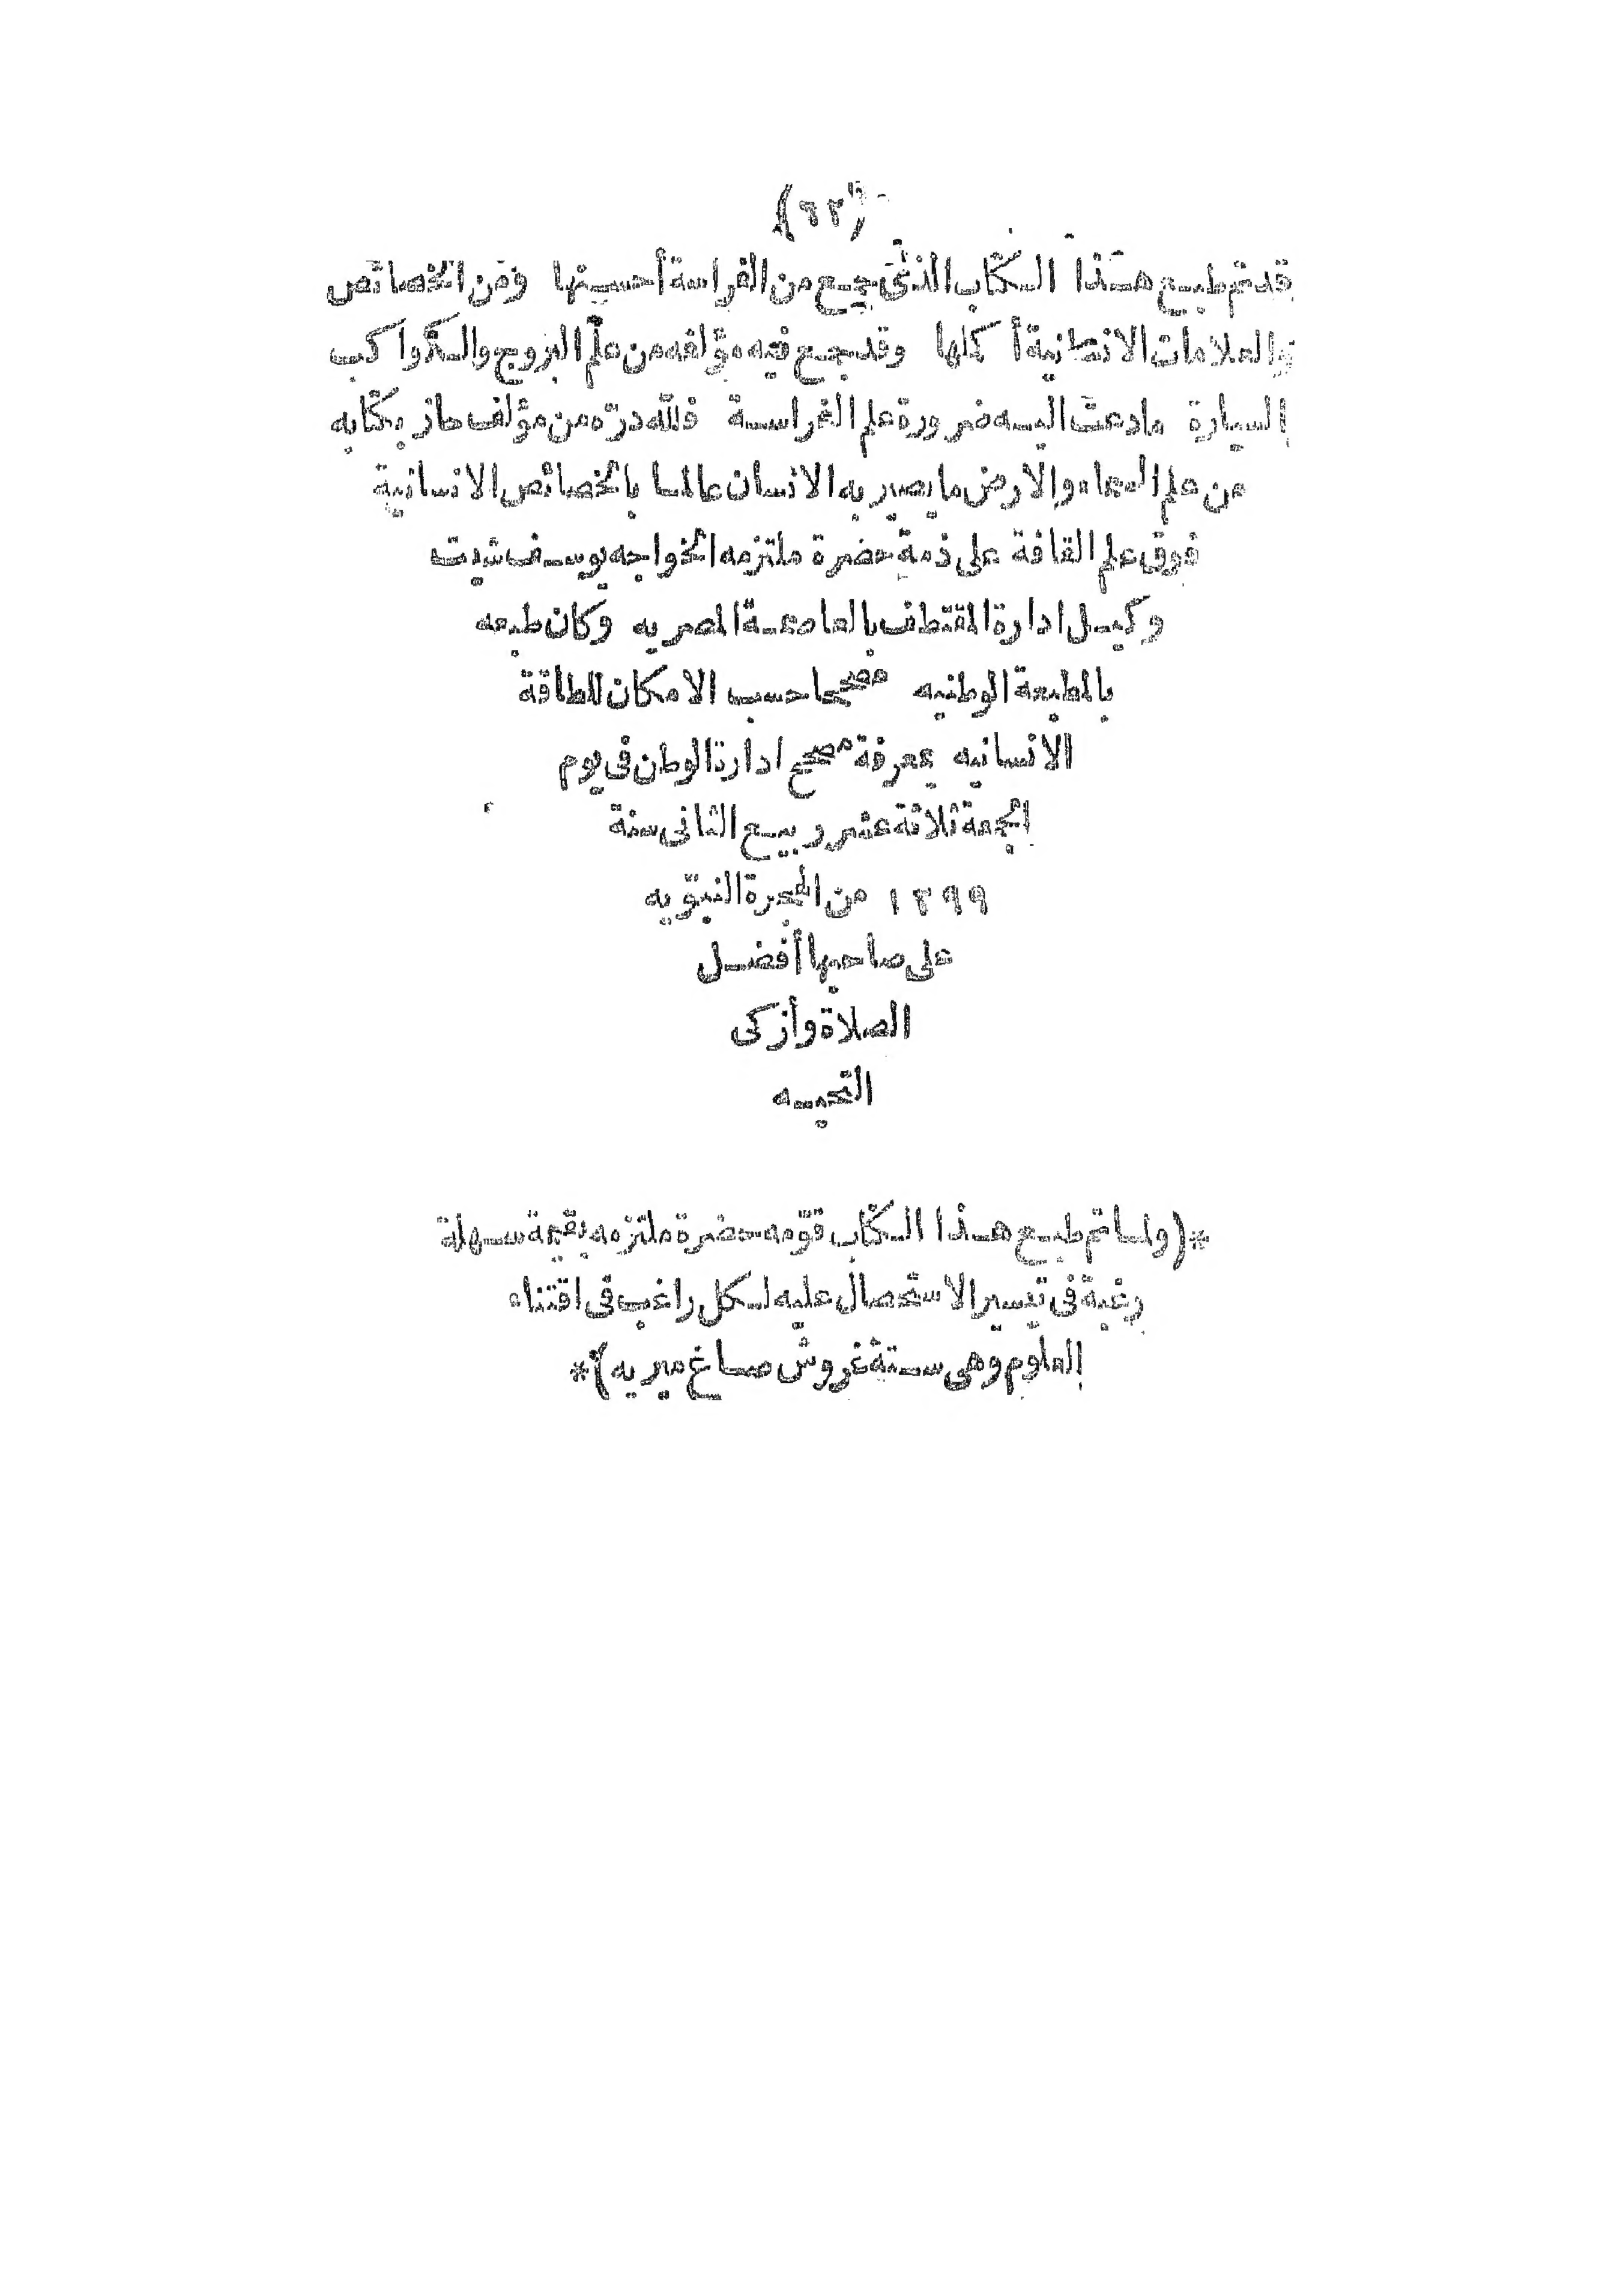 (٦٢)
قد تم طبع هذا الكتاب الذى جمع من الفراسة أحسنها ومن الخصائص
والعلامات الانسانية أكملها وقد جمع فيه مؤلفه من علم البروج والكواكب
السيارة مادعت اليه ضرورة علم الفراسة فلله درّه من مؤلف حاز بكتابه
من علم السماء والارض ما يصير به الانسان عالما بالخصائص الانسانية
فوق علم القافة على ذمة حضرة ملتزمه الخواجه يوسف شيت
وكيل ادارة المقتطف بالعاصمة المصريه وكان طبعه
بالمطبعة الوطنيه مصححا حسب الامكان للطاقة
الانسانيه بمعرفة مصحح ادارة الوطن فى يوم
الجمعة ثلاثة عشر ربيع الثانى سنة
١٢٩٩ من الهجرة النبوّيه
على صاحبها أفضل
الصلاة وأزكى
التحيه
*(ولما تم طبع هذا الكتاب قوّمه حضرة ملتزمه بقيمة سهلة
رغبة فى تيسير الاستحصال عليه لكل راغب فى اقتناء
العلوم وهى ستة غروش صاغ ميريه)*